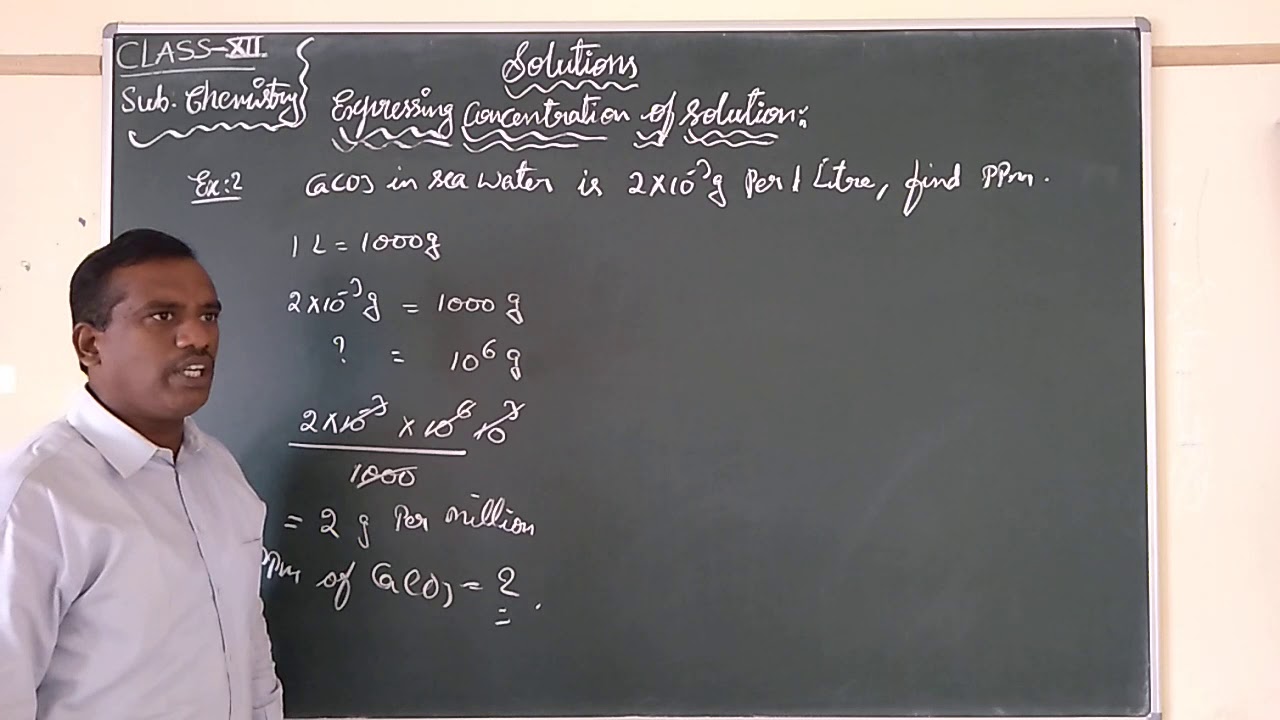 CLASS-XII
Sub. Chemistry
Solutions
Expressing Concentration of Solution:
Ex:2 CaCO3 in sea water is 2×10⁻³g Per 1 Litre, find PPm.
1 L = 1000g
2×10⁻³g = 1000 g
? = 10⁶ g
2×10⁻³ × 10⁶ 10³
1000
= 2 g Per million
PPm of CaCO3 = 2.